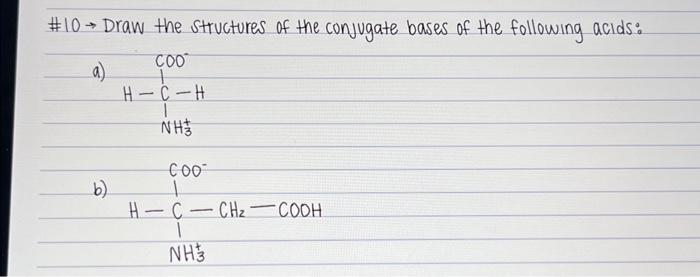 #10 → Draw the structures of the conjugate bases of the following acids:
a)
COO⁻
H — C — H
NH₃⁺
b)
COO⁻
H — C — CH₂ — COOH
NH₃⁺